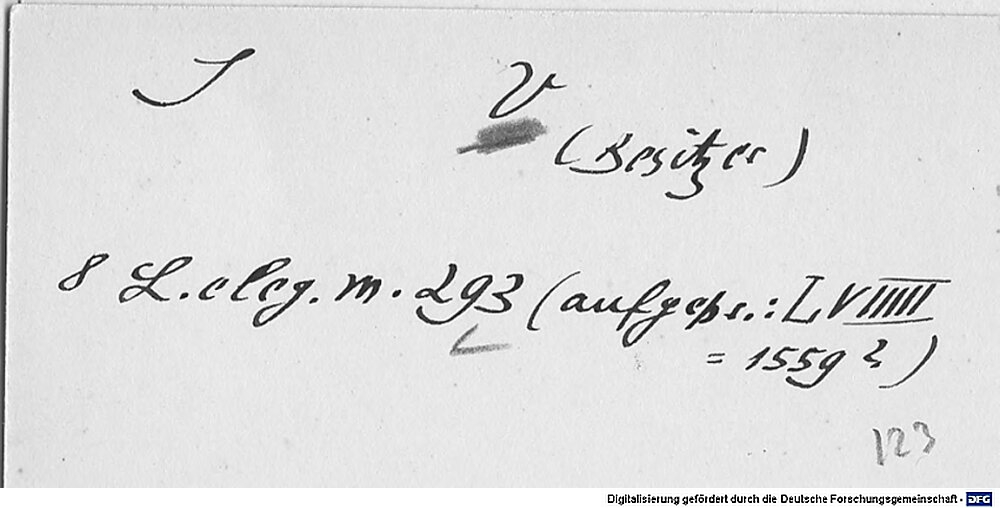 J V
(Besitzer)
8 L. eleg. m. 293 (aufgepr.: LVIIIII
= 1559?)
123
Digitalisierung gefördert durch die Deutsche Forschungsgemeinschaft - DFG